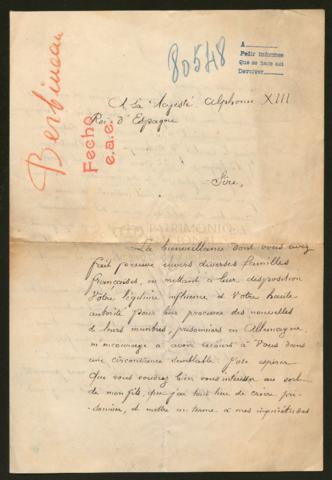 Berbineau
Fecho
e.a.c.
80548
A
Pedir informes
Que se hace así
Devolver
A Sa Majesté Alphonse XIII
Roi d'Espagne
Sire,
PATRIMONIO
La bienveillance dont vous avez
fait preuve envers diverses familles
françaises, en mettant à leur disposition
Votre légitime influence et Votre haute
autorité pour leur procurer des nouvelles
de leurs membres, prisonniers en Allemagne
m'encourage à avoir recours à Vous dans
une circonstance semblable. J'ose espérer
que vous voudrez bien vous intéresser au sort
de mon fils, que j'ai tout lieu de croire pri-
sonnier, et mettre un terme à mes inquiétudes